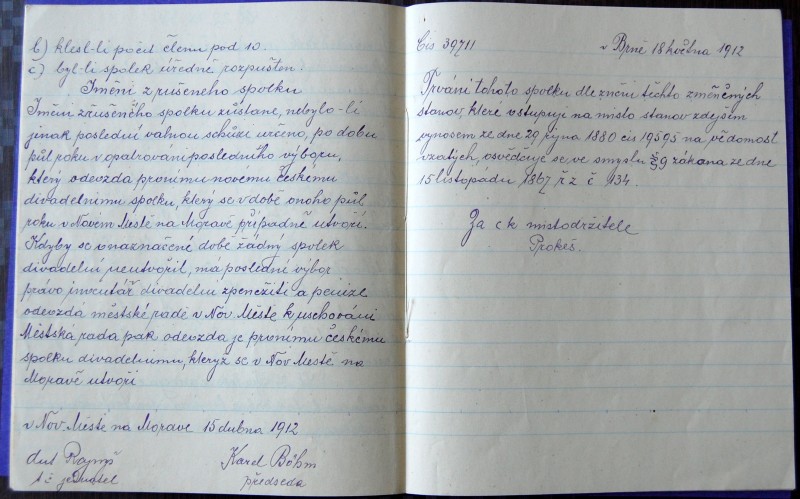 b) klesl-li počet členu pod 10.
c) byl-li spolek úředně rozpušten.
Jmění zrušeneho spolku
Jmění zrušeného spolku zůstane, nebylo-li
jinak poslední valnou schůzí určeno, po dobu
půl roku v opatrování posledního výboru,
který odevzda prvnímu novemu českému
divadelnimu spolku, který se v době onoho půl
roku v Novém Městě na Moravě případně utvoří.
Kdyby se v naznačené době žádný spolek
divadelní neutvořil, má poslední výbor
právo inventář divadelní zpeněžiti a penize
odevzdá městské radě v Nov Městě k uschování
Městská rada pak odevzda je prvnímu českému
spolku divadelnimu, kterýž se v Nov Městě na
Moravě utvoří
v Nov Městě na Morave 15 dubna 1912
Karel Böhm
t č jednatel
předseda
Čis 39711
v Brně 18 května 1912
Trvání tohoto spolku dle znění těchto změněných
stanov, které vstupují na místo stanov zdejším
vynosem ze dne 29 října 1880 čis 19595 na vědomost
vzatých, osvědčuje se, ve smyslu § 9 zákona ze dne
15 listopádu 1867 ř z č 134.
Za c k místodržitele
Prokeš.